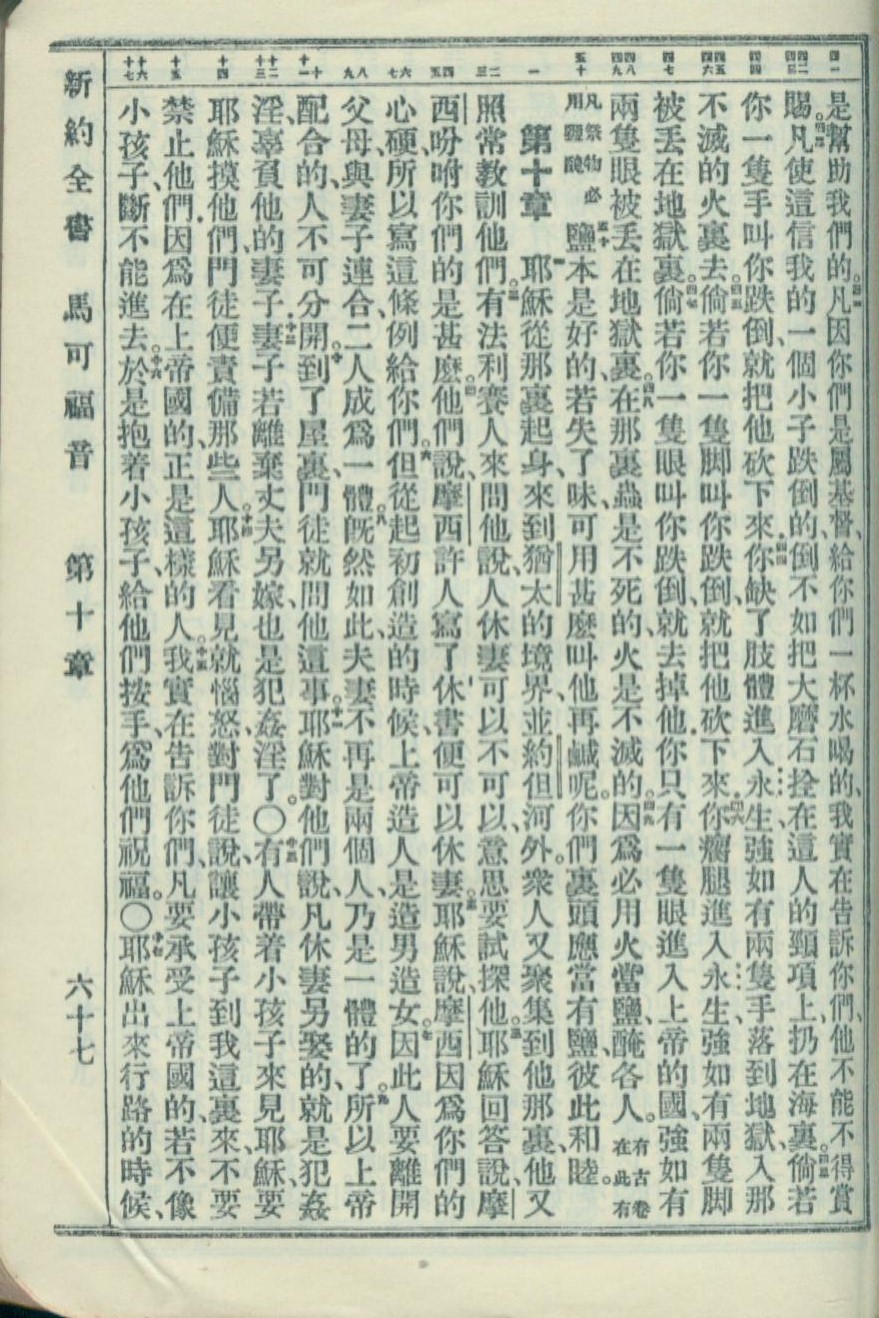 是幫助我們的。凡因你們是屬基督、給你們一杯水喝的、我實在告訴你們、他不能不得賞
賜。凡使這信我的一個小子跌倒的、倒不如把大磨石拴在這人的頸項上、扔在海裏。倘若
你一隻手叫你跌倒、就把他砍下來、你缺了肢體進入永生、強如有兩隻手落到地獄、入那
不滅的火裏去。倘若你一隻脚叫你跌倒、就把他砍下來、你瘸腿進入永生、強如有兩隻脚
被丟在地獄裏。倘若你一隻眼叫你跌倒、就去掉他、你只有一隻眼進入上帝的國、強如有
兩隻眼被丟在地獄裏。在那裏蟲是不死的、火是不滅的。因爲必用火當鹽、醃各人。有古卷在此有
凡祭物必用鹽醃 鹽本是好的、若失了味、可用甚麼叫他再鹹呢。你們裏頭應當有鹽、彼此和睦。
第十章 耶穌從那裏起身、來到猶太的境界、並約但河外。衆人又聚集到他那裏、他又
照常教訓他們。有法利賽人來問他說、人休妻可以不可以、意思要試探他。耶穌回答說、摩
西吩咐你們的是甚麼。他們說、摩西許人寫了休書便可以休妻。耶穌說、摩西因爲你們的
心硬、所以寫這條例給你們。但從起初創造的時候、上帝造人是造男造女。因此人要離開
父母、與妻子連合、二人成爲一體。旣然如此、夫妻不再是兩個人、乃是一體的了。所以上帝
配合的、人不可分開。到了屋裏、門徒就問他這事。耶穌對他們說、凡休妻另娶的、就是犯姦
淫、辜負他的妻子、妻子若離棄丈夫另嫁、也是犯姦淫了。〇有人帶着小孩子來見耶穌、要
耶穌摸他們、門徒便責備那些人。耶穌看見就惱怒、對門徒說、讓小孩子到我這裏來、不要
禁止他們、因爲在上帝國的、正是這樣的人。我實在告訴你們、凡要承受上帝國的、若不像
小孩子、斷不能進去。於是抱着小孩子、給他們按手、爲他們祝福。〇耶穌出來行路的時候、
新約全書 馬可福音 第十章 六十七